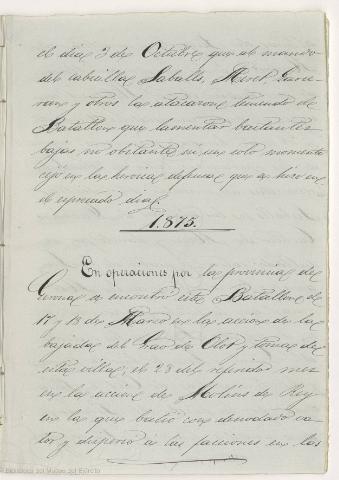 el dia 3 de Octubre que al mando
del cabecilla Saballs, Miret
y otros la atacaron teniendo
Batallon que lamentar bastantes
bajas no obstante ni un solo momento
cejó en la heroica defensa que se hizo en
el espresado dia.
1.875.
En operaciones por la provincia de
Gerona se encontró este Batallon el
17 y 18 de Marzo en la accion de la
bajada del Grao de Olot y toma de
esta villa, el 28 del referido mes
en la accion de Molins de Rey
en la que batió con denodado va-
lor y dispersó á las facciones en las
Biblioteca del Museo del Ejército